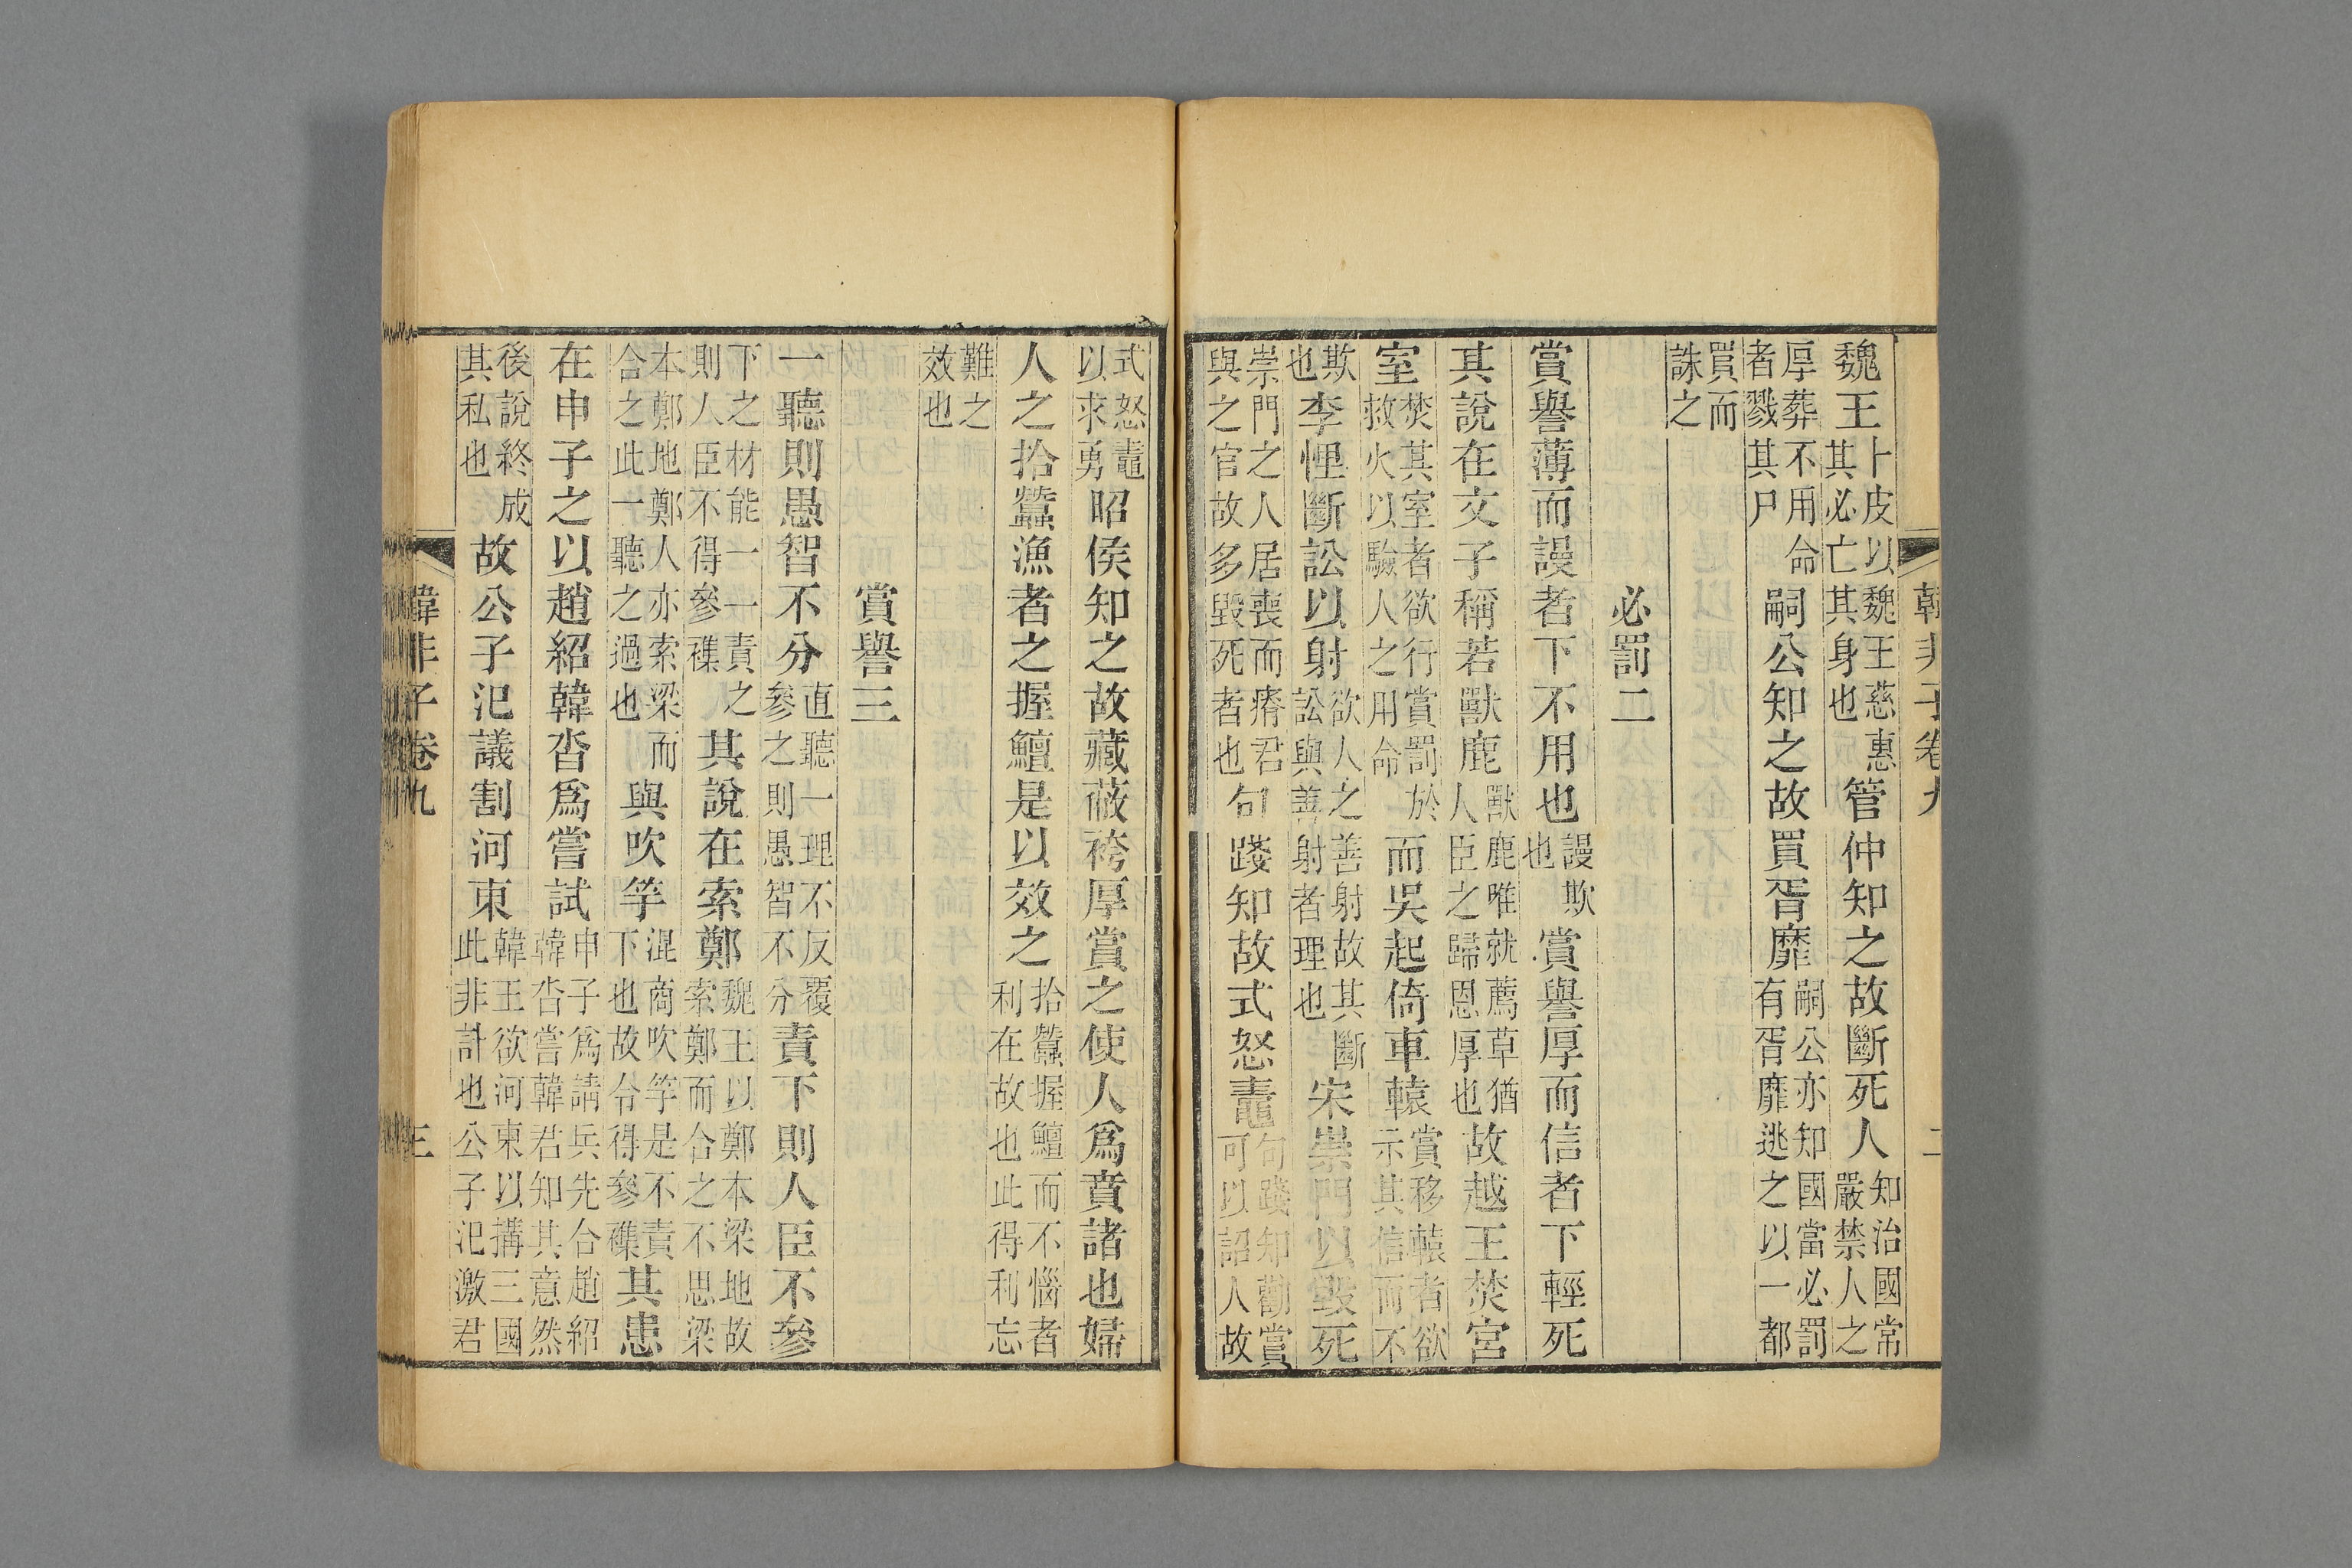 魏王卜皮以魏王慈惠其必亡其身也管仲知之故斷死人知治國常嚴禁人之
厚葬不用命者戮其尸嗣公知之故買胥靡嗣公亦知國當必罰有胥靡逃之以一都
買而誅之
必罰二
賞譽薄而謾者下不用也謾欺也賞譽厚而信者下輕死
其說在文子稱若獸鹿獸鹿唯就薦草猶人臣之歸恩厚也故越王焚宮
室焚其室者欲行賞罰於救火以驗人之用命而吳起倚車轅賞移轅者欲示其信而不
欺也李悝斷訟以射欲人之善射故其斷訟與善射者理也宋崇門以毀死
崇門之人居喪而瘠君與之官故多毀死者也句踐知故式怒鼃句踐知勸賞可以詔人故
式怒鼃以求勇昭侯知之故藏蔽袴厚賞之使人爲賁諸也婦
人之拾蠶漁者之握鱣是以效之拾蠶握鱣而不惱者利在故也此得利忘
難之效也
賞譽三
一聽則愚智不分直聽一理不反覆參之則愚智不分責下則人臣不參
下之材能一一責之則人臣不得參襍其說在索鄭魏王以鄭本梁地故索鄭而合之不思梁
本鄭地鄭人亦索梁而合之此一聽之過也與吹竽混商吹竽是不責下也故令得參襍其患
在申子之以趙紹韓沓爲嘗試申子爲請兵先合趙紹韓沓嘗韓君知其意然
後說終成其私也故公子氾議割河東韓王欲河東以搆三國此非計也公子氾激君
韓非子卷九
三